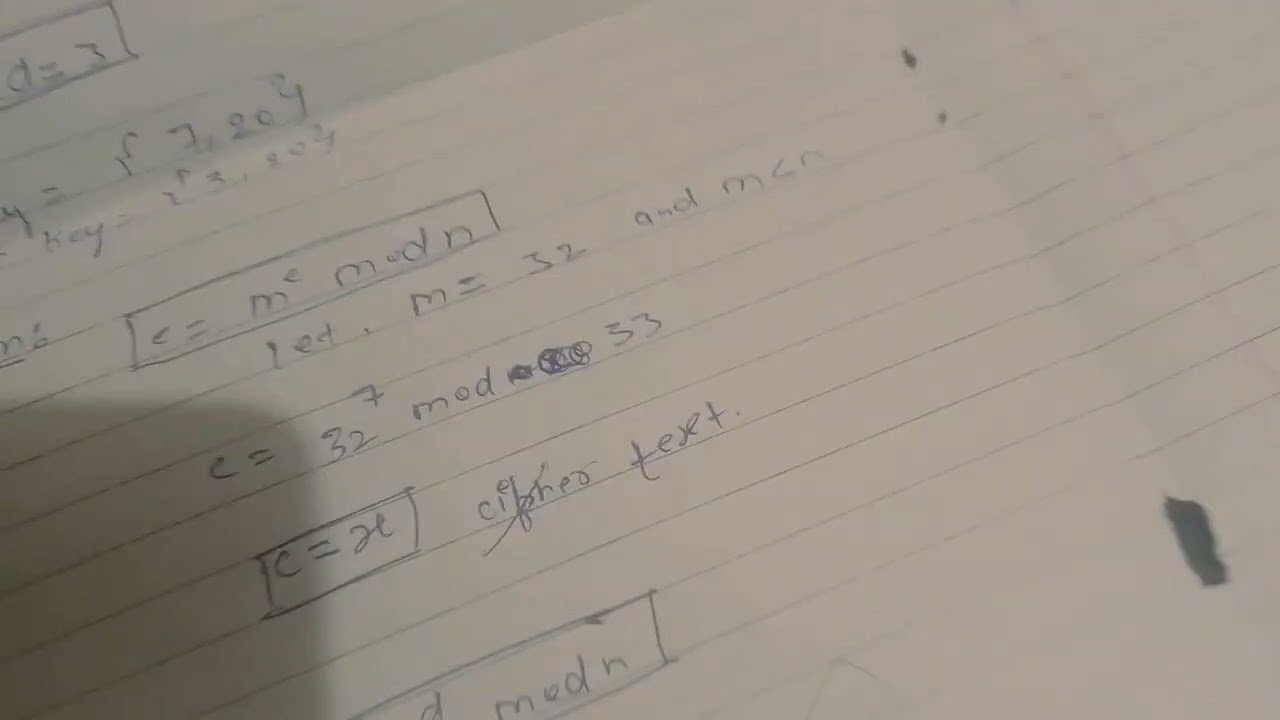 d = 3
y = { 7, 20 }
key = { 3, 20 }
c = m^e mod n
let, m = 32 and m < n
c = 32^7 mod 33
c = x cipher text.
d mod n